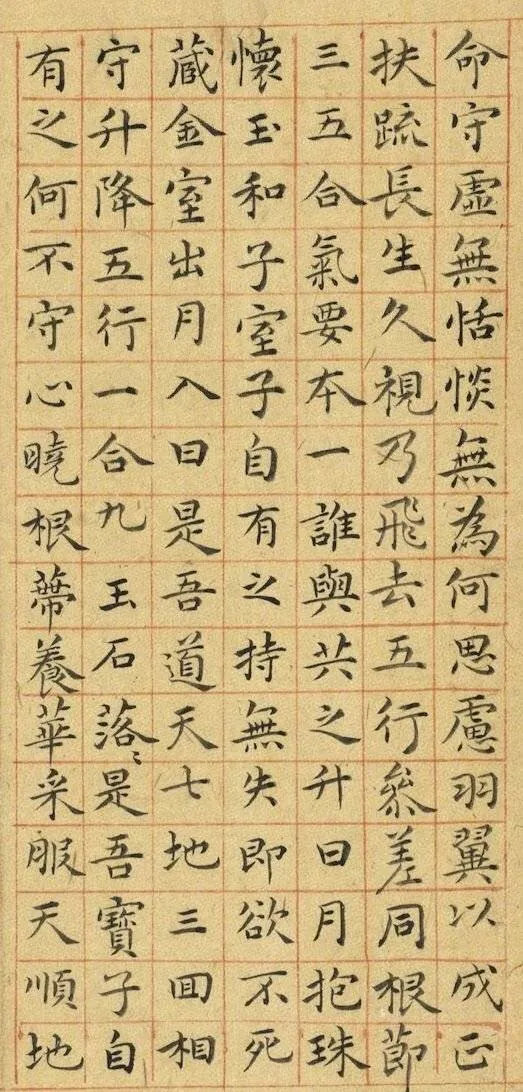 命守虛無恬惔無為何思慮羽翼以成正
扶疏長生久視乃飛去五行叅差同根節
三五合氣要本一誰與共之升日月抱珠
懷玉和子室子自有之持無失即欲不死
藏金室出月入日是吾道天七地三回相
守升降五行一合九玉石落〻是吾寶子自
有之何不守心曉根蔕養華采服天順地